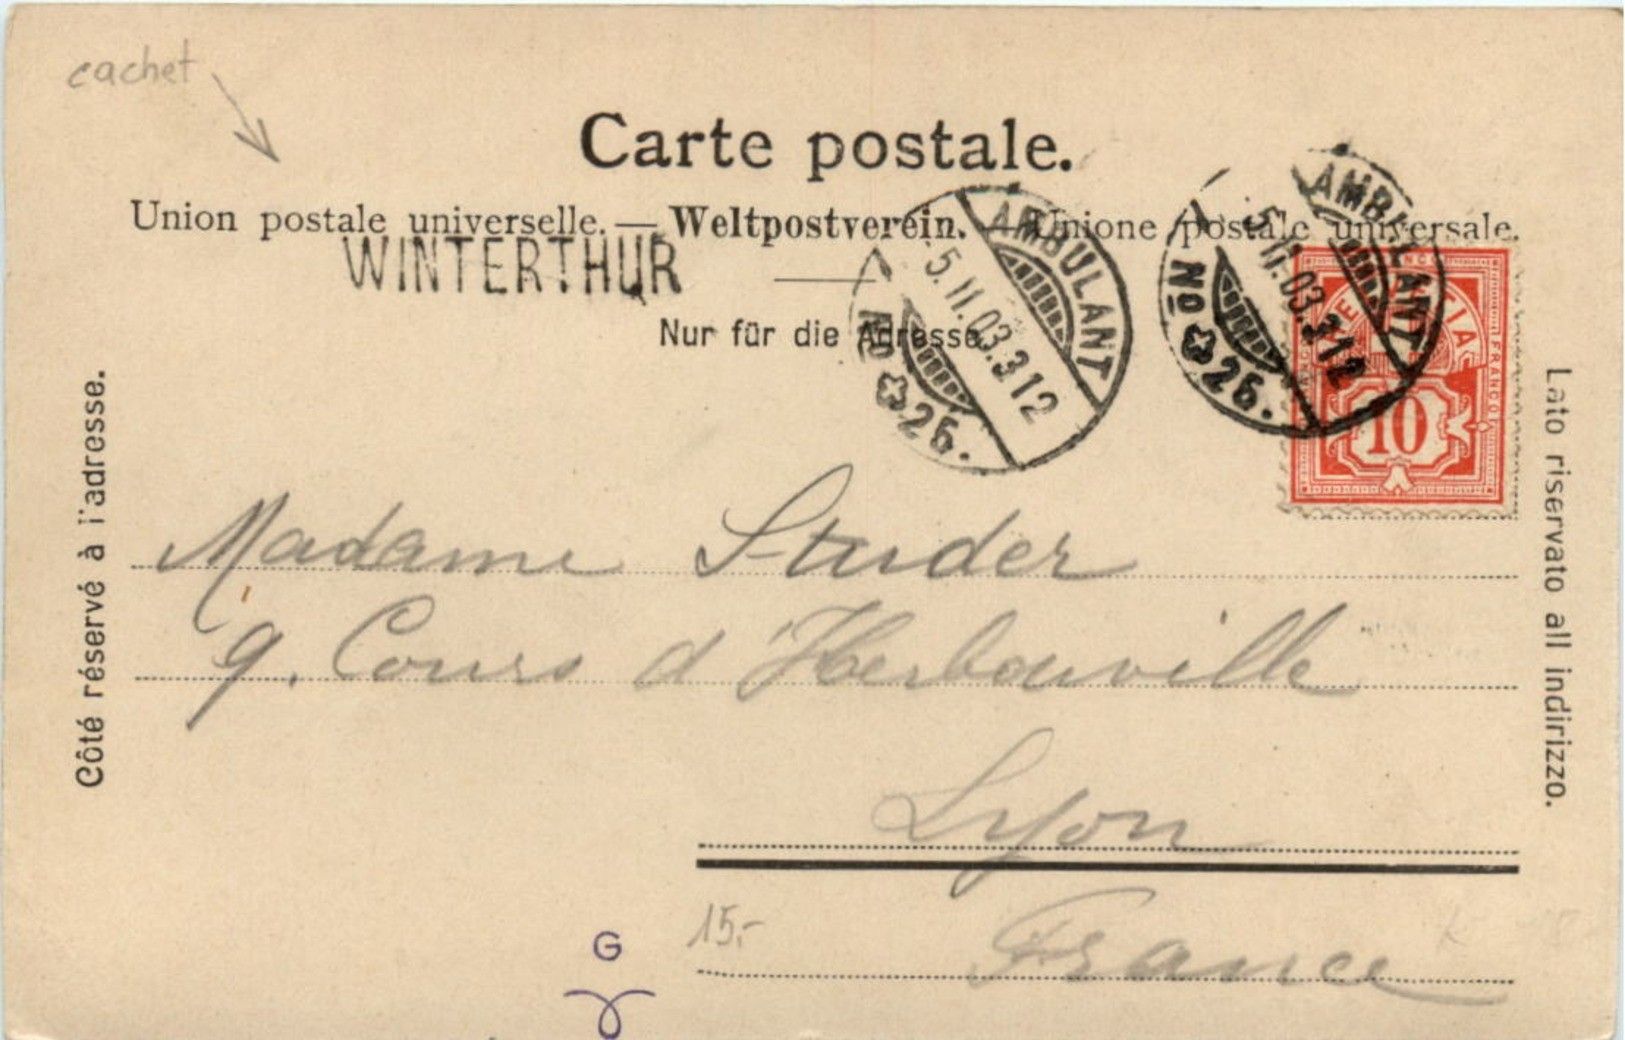 cachet
Carte postale.
Union postale universelle. — Weltpostverein. — Unione postale universale.
WINTERTHUR
Nur für die Adresse
AMBULANT
5.II.03.312
No 26.
AMBULANT
5.II.03.312
No 26.
FRANCO
10
Côté réservé à l'adresse.
Lato riservato all indirizzo.
Madame Studer
9. Cours d'Herbouville
Lyon
France
15.-
G